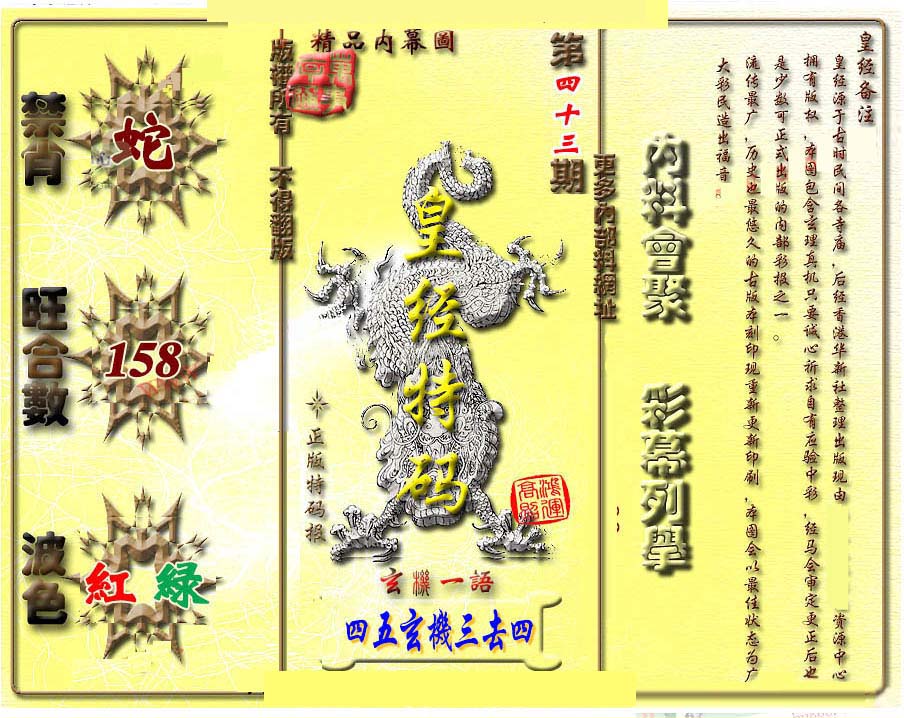 精品内幕圖
第四十三期
版權所有 不得翻版
更多內部料網址
禁肖
蛇
旺合數
158
波色
紅 綠
皇经特码
正版特码报
鴻運高照
玄機一語
四五玄機三去四
内料會聚
彩幕列舉
皇经备注
皇经源于古时民间各寺庙，后经香港华新社整理出版现由 资源中心
拥有版权，本图包含玄理真机只要诚心祈求自有应验中彩，经马会审定更正后也
是少数可正式出版的内部彩报之一。
流传最广，历史也最悠久的古版本刻印现重新更新印刷，本图会以最佳状态为广
大彩民造出福音